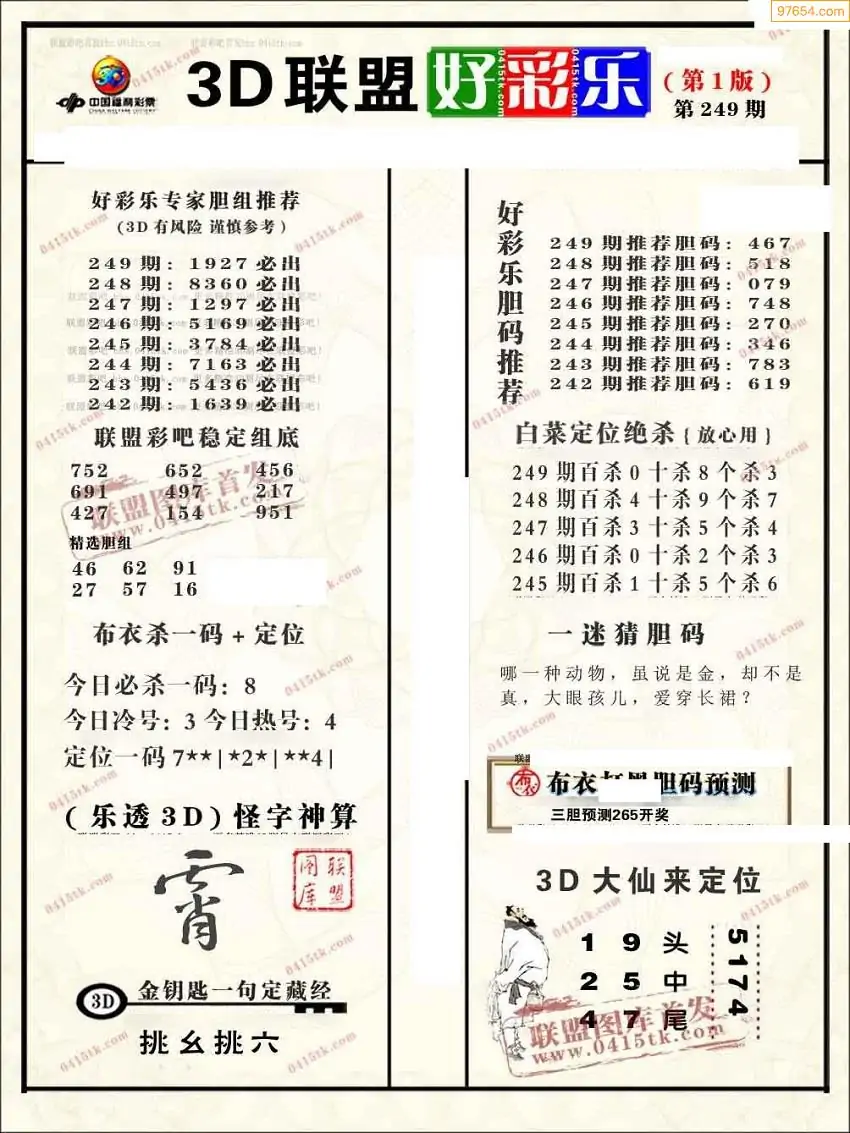 97654.com
中国福利彩票
CHINA WELFARE LOTTERY
3D联盟好彩乐
0415tk.com
0415tk.com
(第1版)
第249期
好彩乐专家胆组推荐
(3D有风险 谨慎参考)
249期: 1927必出
248期: 8360必出
247期: 1297必出
246期: 5169必出
245期: 3784必出
244期: 7163必出
243期: 5436必出
242期: 1639必出
联盟彩吧稳定组底
752 652 456
691 497 217
427 154 951
精选胆组
46 62 91
27 57 16
布衣杀一码+定位
今日必杀一码: 8
今日冷号: 3 今日热号: 4
定位一码7**|*2*|**4|
(乐透3D)怪字神算
霄
联盟图库
3D 金钥匙一句定藏经
挑幺挑六
好彩乐胆码推荐
249期推荐胆码: 467
248期推荐胆码: 518
247期推荐胆码: 079
246期推荐胆码: 748
245期推荐胆码: 270
244期推荐胆码: 346
243期推荐胆码: 783
242期推荐胆码: 619
白菜定位绝杀{放心用}
249期百杀0十杀8个杀3
248期百杀4十杀9个杀7
247期百杀3十杀5个杀4
246期百杀0十杀2个杀3
245期百杀1十杀5个杀6
一迷猜胆码
哪一种动物，虽说是金，却不是
真，大眼孩儿，爱穿长裙？
联盟
布衣
布衣 胆码预测
三胆预测265开奖
3D大仙来定位
1 9 头
2 5 中
4 7 尾
5174
联盟图库首发
www.0415tk.com
联盟图库首发
www.0415tk.com
0415tk.com